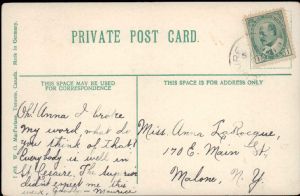 PRIVATE POST CARD.
THIS SPACE MAY BE USED
FOR CORRESPONDENCE
THIS SPACE IS FOR ADDRESS
Oh! Anna I broke
my word, what do
you think of that!
Everybody is well in
St Cesaire. The
didn't expect me this
week,
Maurice
Miss. Anna LaRocque,
170 E. Main St
Malone, N.Y.
Toronto, Canada. Made in Germany.